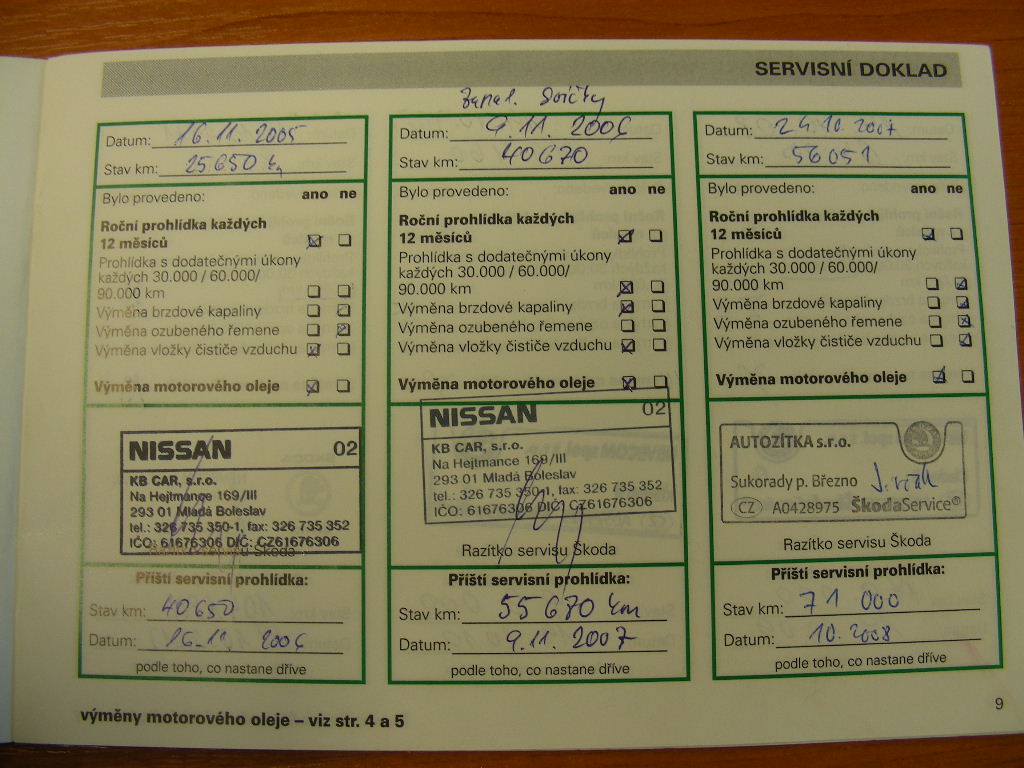 SERVISNÍ DOKLAD
Datum: 16.11.2005
Stav km: 25650 km
Bylo provedeno: ano ne
Roční prohlídka každých
12 měsíců
Prohlídka s dodatečnými úkony
každých 30.000 / 60.000/
90.000 km
Výměna brzdové kapaliny
Výměna ozubeného řemene
Výměna vložky čističe vzduchu
Výměna motorového oleje
NISSAN 02
KB CAR, s.r.o.
Na Hejtmance 169/III
293 01 Mladá Boleslav
tel.: 326 735 350-1, fax: 326 735 352
IČO: 61676306 DIČ: CZ61676306
Příští servisní prohlídka:
Stav km: 40650
Datum: 16.11.2006
podle toho, co nastane dříve
Zapal. Svíčky
Datum: 9.11.2006
Stav km: 40670
Bylo provedeno: ano ne
Roční prohlídka každých
12 měsíců
Prohlídka s dodatečnými úkony
každých 30.000 / 60.000/
90.000 km
Výměna brzdové kapaliny
Výměna ozubeného řemene
Výměna vložky čističe vzduchu
Výměna motorového oleje
NISSAN 02
KB CAR, s.r.o.
Na Hejtmance 169/III
293 01 Mladá Boleslav
tel.: 326 735 350-1, fax: 326 735 352
IČO: 61676306 DIČ: CZ61676306
Razítko servisu Škoda
Příští servisní prohlídka:
Stav km: 55670 km
Datum: 9.11.2007
podle toho, co nastane dříve
Datum: 24.10.2007
Stav km: 56051
Bylo provedeno: ano ne
Roční prohlídka každých
12 měsíců
Prohlídka s dodatečnými úkony
každých 30.000 / 60.000/
90.000 km
Výměna brzdové kapaliny
Výměna ozubeného řemene
Výměna vložky čističe vzduchu
Výměna motorového oleje
AUTOZÍTKA s.r.o.
Sukorady p. Březno
CZ A0428975 ŠkodaService®
Razítko servisu Škoda
Příští servisní prohlídka:
Stav km: 71 000
Datum: 10.2008
podle toho, co nastane dříve
výměny motorového oleje – viz str. 4 a 5
9